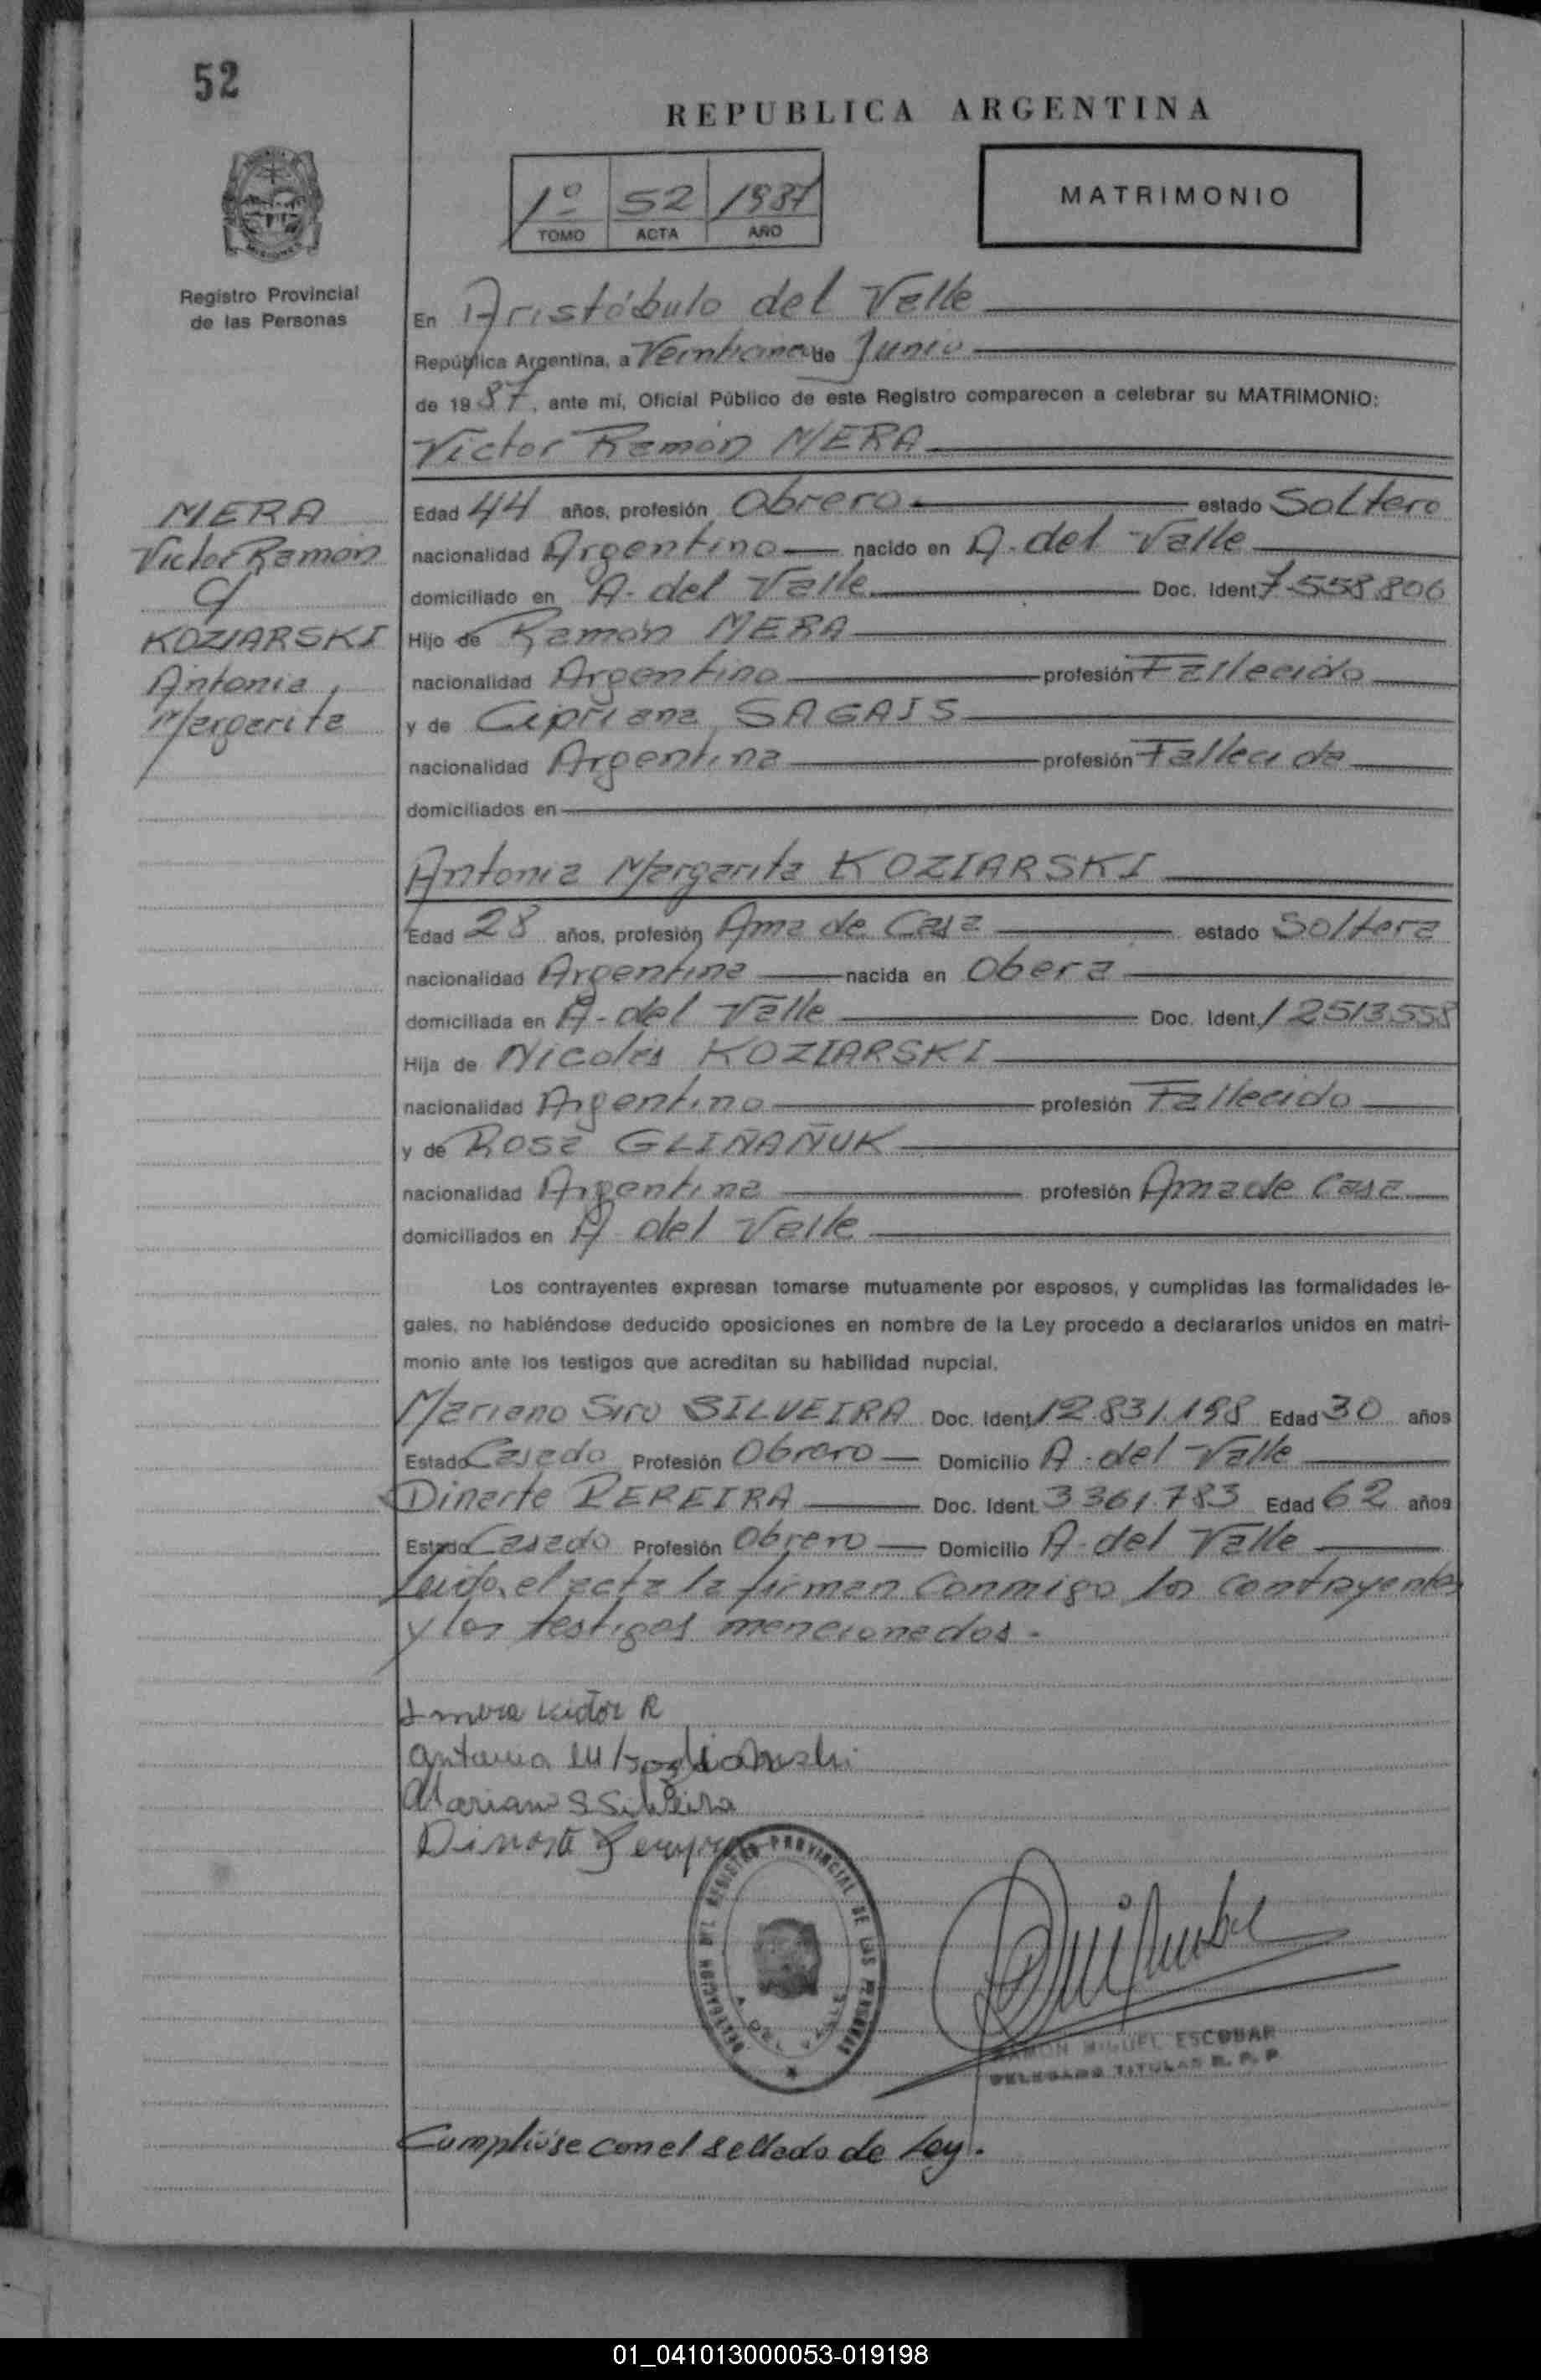 52
REPUBLICA ARGENTINA
1º 52 1987
TOMO ACTA AÑO
MATRIMONIO
Registro Provincial
de las Personas
En Aristóbulo del Valle
República Argentina, a de Junio
de 1987, ante mí, Oficial Público de este Registro comparecen a celebrar su MATRIMONIO:
Victor Ramón MERA
MERA
Victor Ramón
c/
KOZIARSKI
Antonia
Margarita
Edad 44 años, profesión Obrero estado Soltero
nacionalidad Argentino nacido en A. del Valle
domiciliado en A. del Valle Doc. Ident. 7.558.806
Hijo de Ramón MERA
nacionalidad Argentino profesión Fallecido
y de Cipriana SAGAIS
nacionalidad Argentina profesión Fallecida
domiciliados en
Antonia Margarita KOZIARSKI
Edad 28 años, profesión Ama de Casa estado Soltera
nacionalidad Argentina nacida en Obera
domiciliada en A. del Valle Doc. Ident. 12513.558
Hija de Nicolás KOZIARSKI
nacionalidad Argentino profesión Fallecido
y de Rosa GLIÑAÑUK
nacionalidad Argentina profesión Ama de Casa
domiciliados en A. del Valle
Los contrayentes expresan tomarse mutuamente por esposos, y cumplidas las formalidades le-
gales, no habiéndose deducido oposiciones en nombre de la Ley procedo a declararlos unidos en matri-
monio ante los testigos que acreditan su habilidad nupcial.
Mariano Siro SILVEIRA Doc. Ident. 12.831.198 Edad 30 años
Estado Casado Profesión Obrero Domicilio A. del Valle
Dinarte PEREIRA Doc. Ident. 3361.783 Edad 62 años
Estado Casado Profesión Obrero Domicilio A. del Valle
Leida el acta la firman conmigo los contrayentes
y los testigos mencionados.
Mera Victor R
Antonia M
Mariano S Silveira
DELEGACION DEL REGISTRO PROVINCIAL DE LAS PERSONAS
A. DEL VALLE
RAMON MIGUEL ESCOBAR
DELEGADO TITULAR R. P. P.
Cumplióse con el sellado de Ley.
01_041013000053-019198